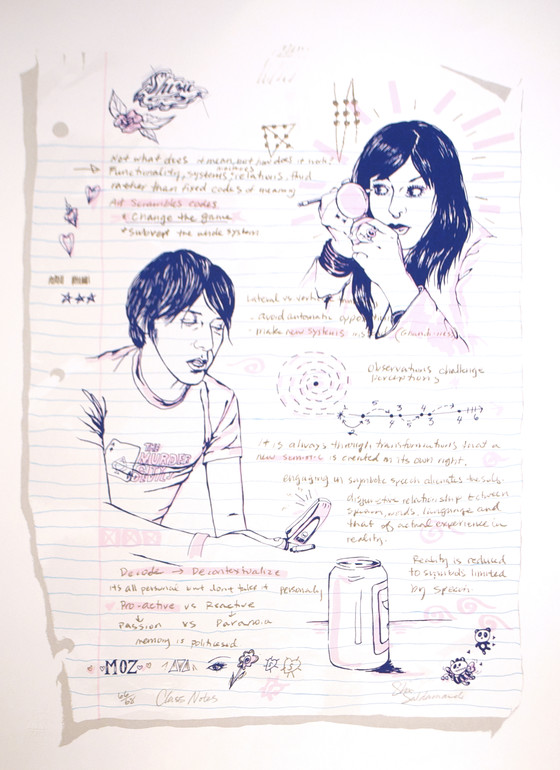 Shizu
Not what does it mean, but how does it work?
Functionality, systems, relations, fluid
rather than fixed codes of meaning
Art Scrambles codes
* Change the game
* Subvert the whole system
Lateral vs
- avoid automatic
- make new systems
Observations challenge
perceptions
It is always through transformations that a
new summis is created on its own right.
engaging in symbolic speech alienates the sub.
disjunctive relationship between
speaking, words, language and
that of actual experience in
reality.
THE
MURDER
Decode → Decontextualize
it's all personal but don't take it personally
Pro-active vs Reactive
Passion vs Paranoia
memory is politicized
Reality is reduced
to symbols limited
by speech.
MOZ
Class Notes